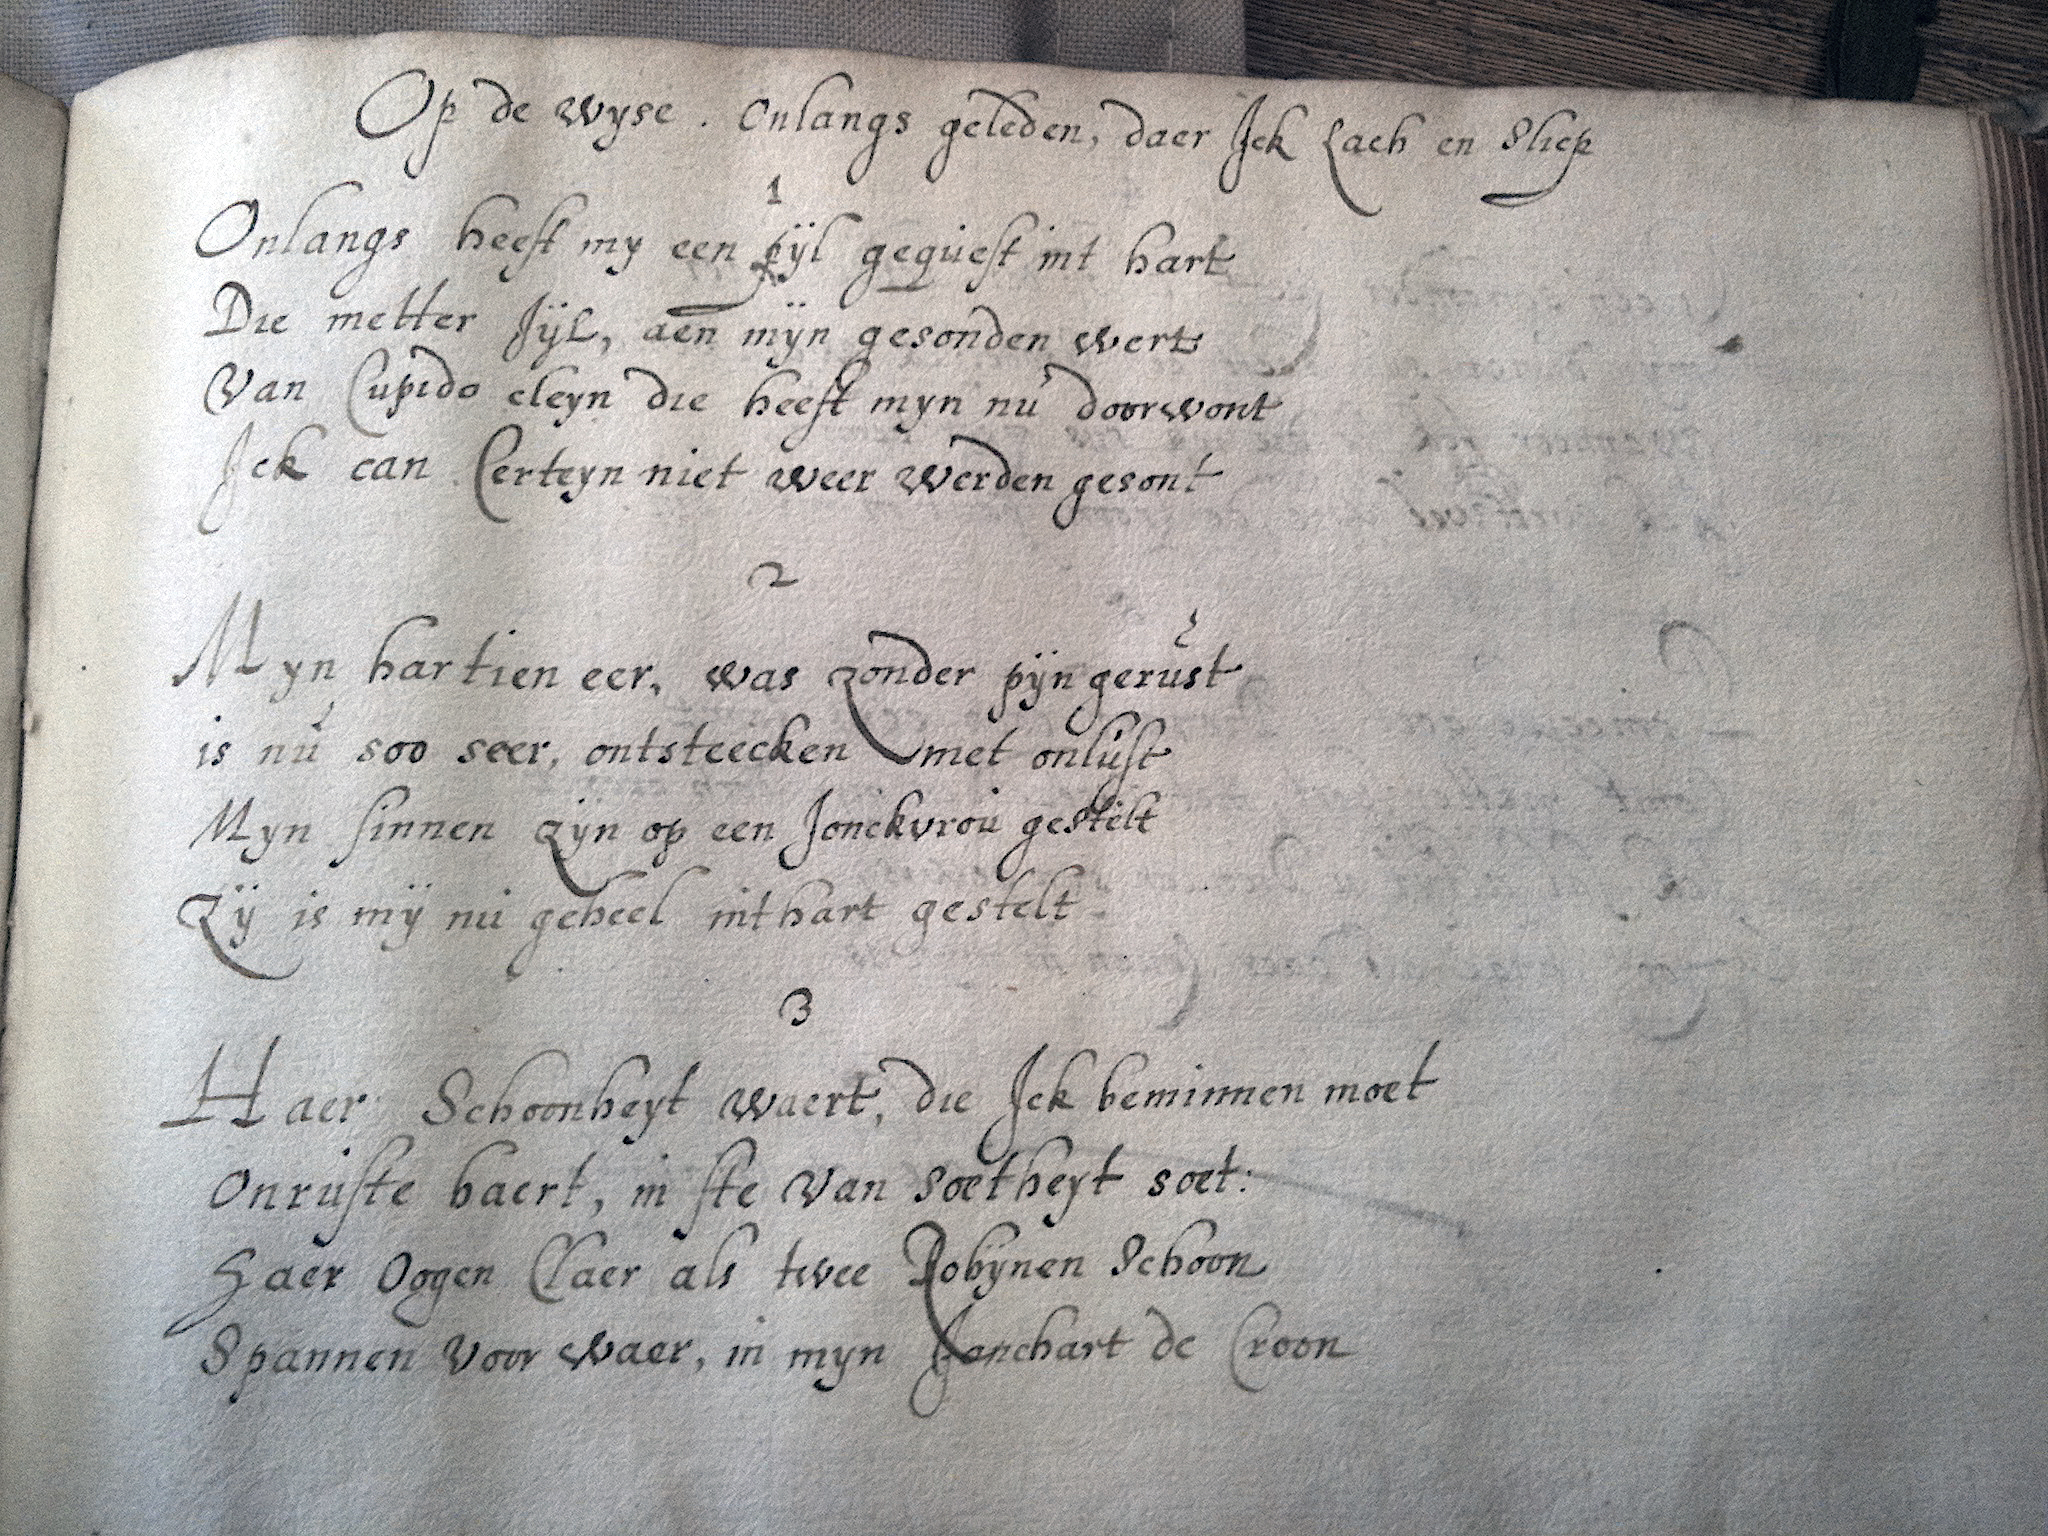 Op de wyse . Onlangs geleden, daer Jck Lach en Sliep
1
Onlangs heeft my een pÿl gequest int hart
Die metter Jÿl, aen mÿn gesonden wert
Van Cupido cleyn die heeft myn nu doorwont
Jck can Certeyn niet weer werden gesont
2
Myn hartien eer, was zonder pÿn gerust
is nu soo seer, ontsteecken met onlust
Myn sinnen zÿn op een Jonckvrou gestelt
Zÿ is mÿ nu geheel int hart gestelt
3
Haer Schoonheyt waert, die Jck beminnen moet
Onruste baert, in ste van soetheyt soet:
Haer Oogen Claer als twee Robÿnen Schoon
Spannen voor waer, in myn Jonchart de Croon